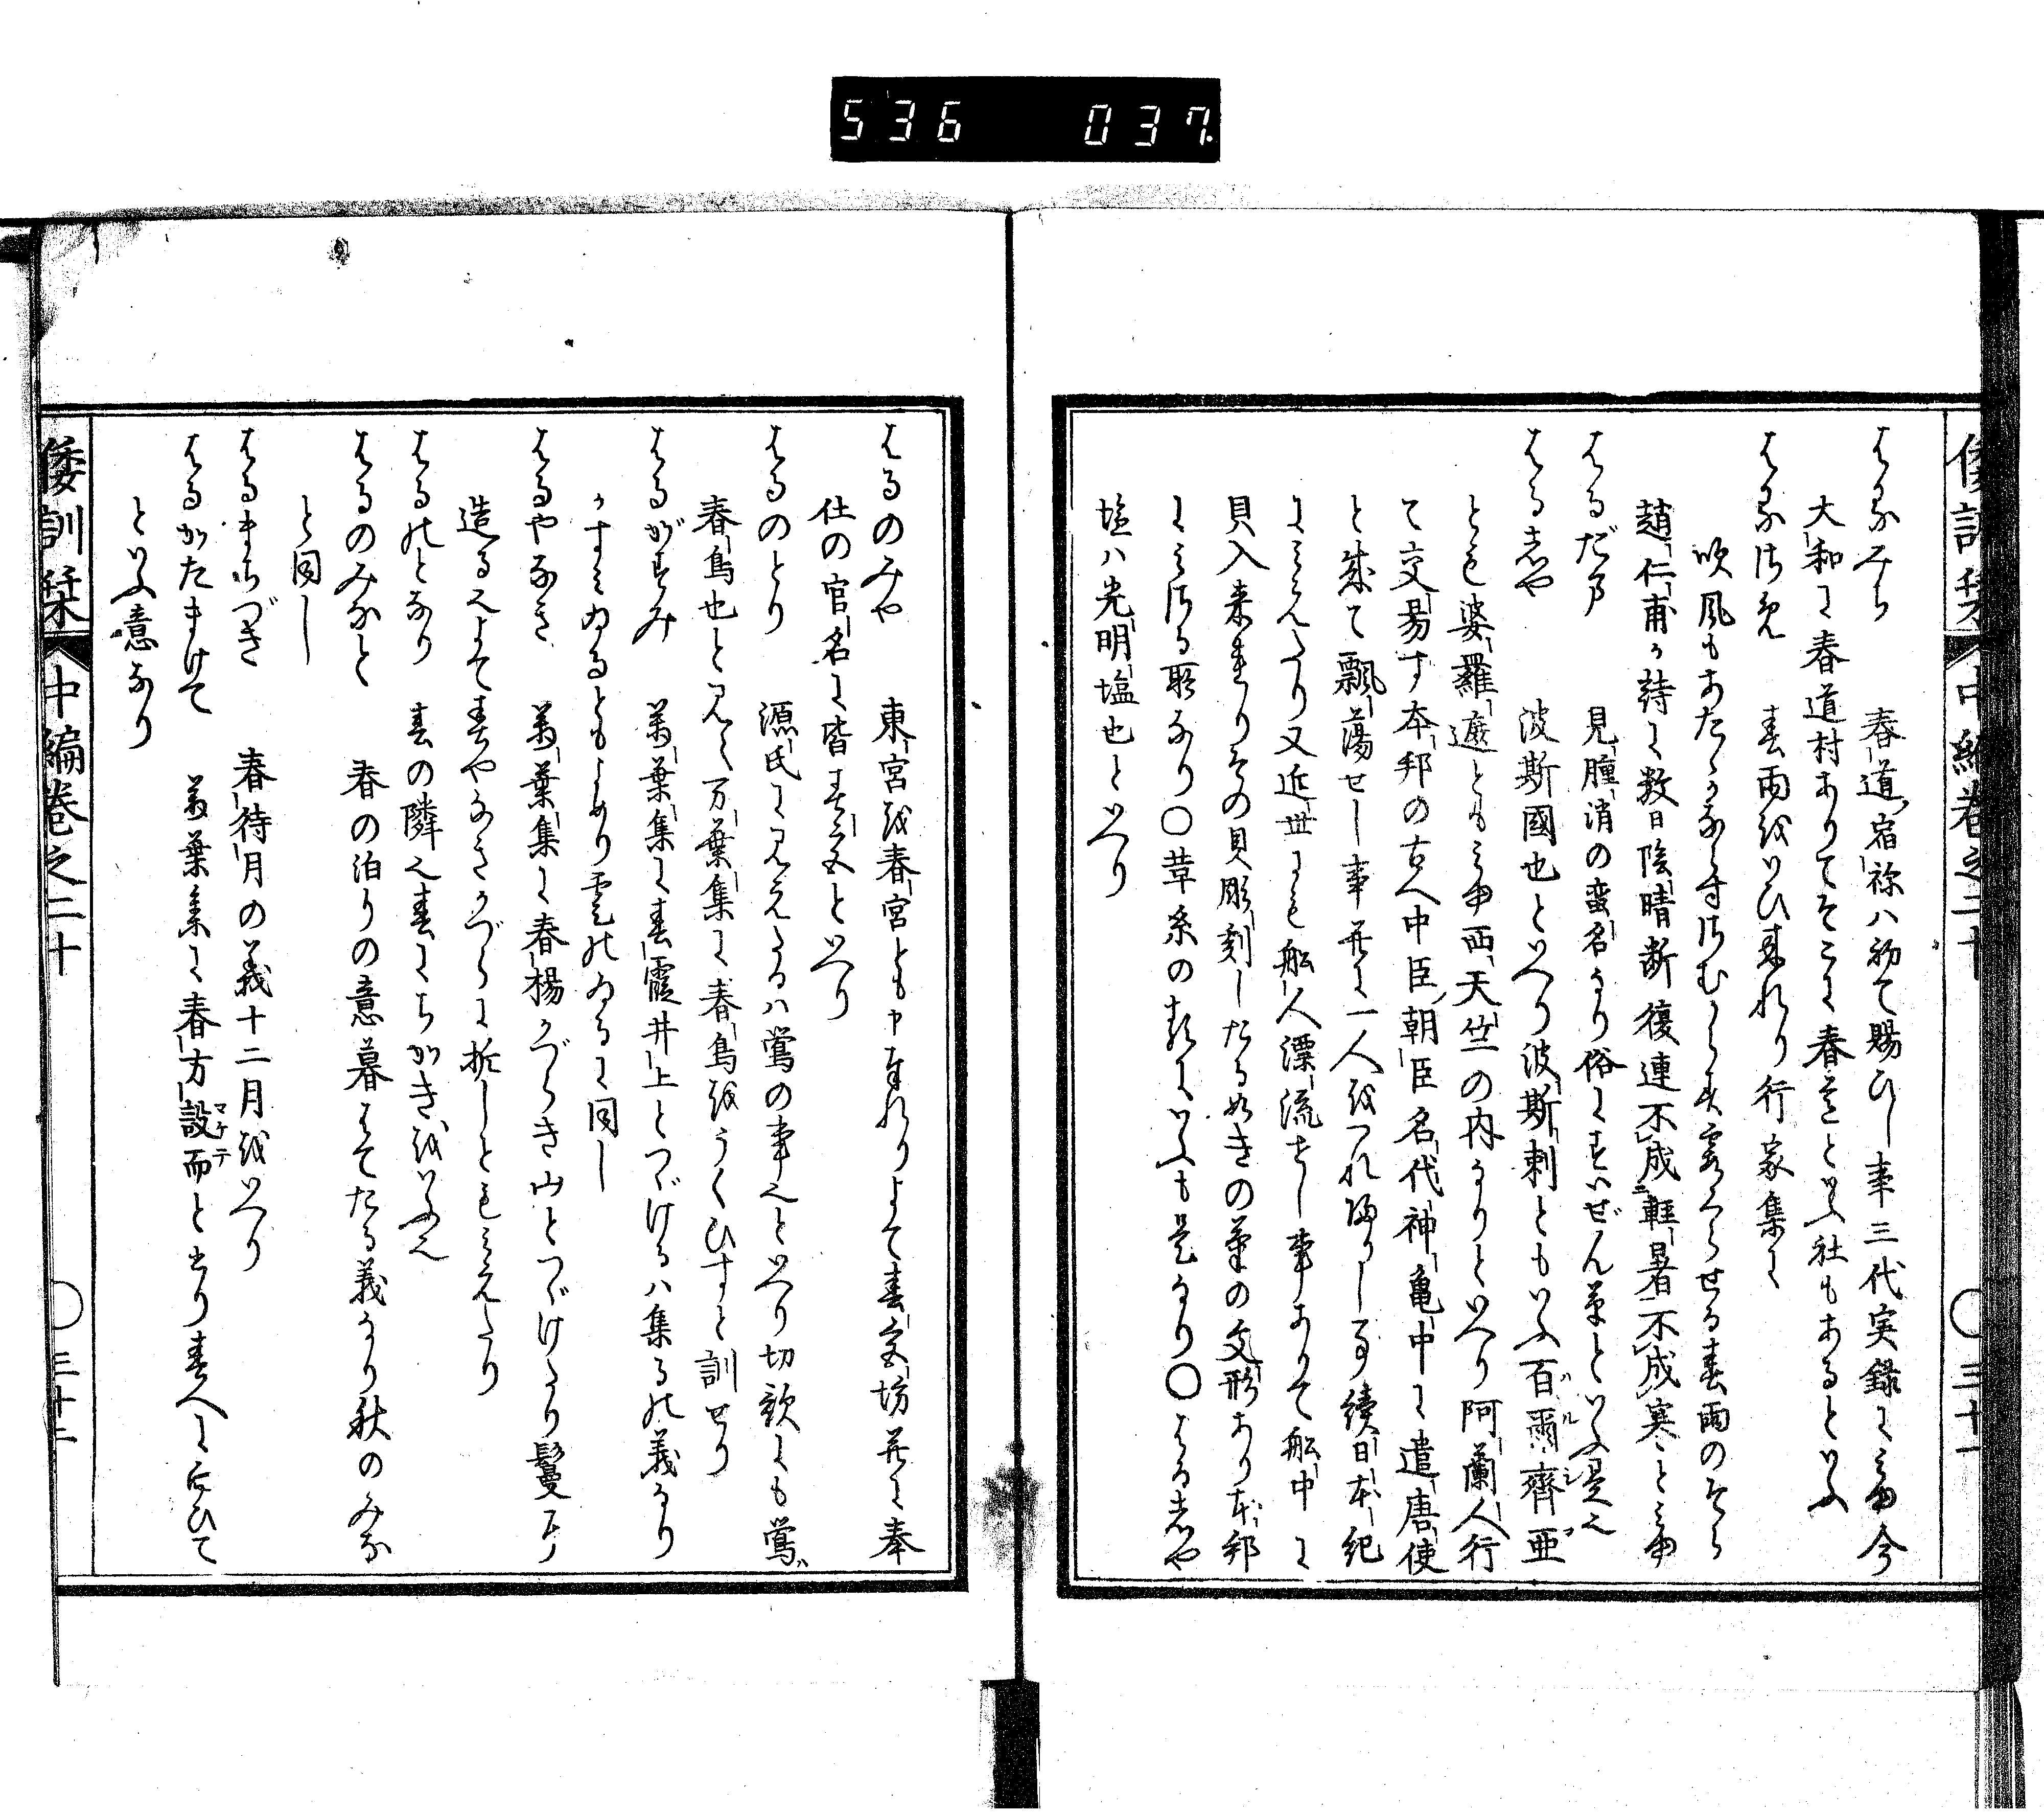 536 037
倭訓栞 中編巻之二十 〇三十一
はるみち 春道宿祢ハ初て賜ひし事三代実録に見ゆ今
大和に春道村ありてそこに春道といふ社もあるといふ
はるさめ 春雨をいひ来れり行家集に
吹風もあたゝかなり
趙仁甫か詩に数日陰晴断復連不成軽暑不成寒と見ゆ
はるだま 見腫消の蛮名なり俗にすいぜん草といふ是也
はるしや 波斯國也といへり波斯刺ともいふ百爾齊亜
とも婆羅遮とも見ゆ西天竺の内なりといへり阿蘭人行
て交易す本邦の古へ中臣朝臣名代神亀中に遣唐使
と成て飄蕩せし事并に一人をつれ帰りし事續日本紀
に見えたり又近世にも舩人漂流せし事ありて舩中に
貝入来れりその貝彫刻したる如きの菊の文形あり本邦
に見さる所なり〇草糸の類にいふも是なり〇はるしや
塩ハ光明塩也といへり
はるのみや 東宮を春宮とも申奉れりよて春宮坊并に奉
仕の官名に皆春宮といへり
はるのとり 源氏に見えたるハ鶯の事也といへり切韻にも鶯
春鳥也と見ゆ万葉集に春鳥をうくひすと訓せり
はるがすみ 萬葉集に春霞井上とつゞけるハ集る義なり
かすみゐるともよめり雲のゐるに同し
はるやなき 萬葉集に春楊かづらき山とつゞけたり鬘に
造る也よて春やなきかづらに折しとも見えたり
はるのとなり 春の隣也春にちかきをいふ也
はるのみなと 春の泊りの意暮はてたる義なり秋のみな
と同し
はるまちづき 春待月の義十二月をいへり
はるかたまけて 萬葉集に春方設而とあり春へに向ひて
といふ意なり
倭訓栞 中編巻之二十 〇三十二